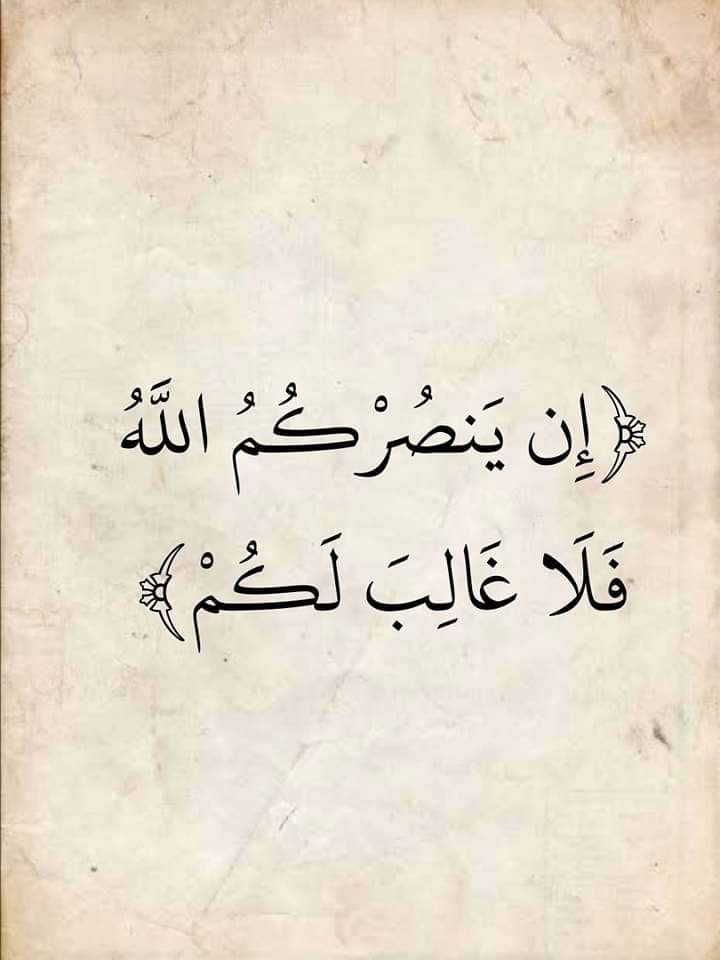 ﴿إِن يَنصُرْكُمُ اللَّهُ
فَلَا غَالِبَ لَكُمْ﴾